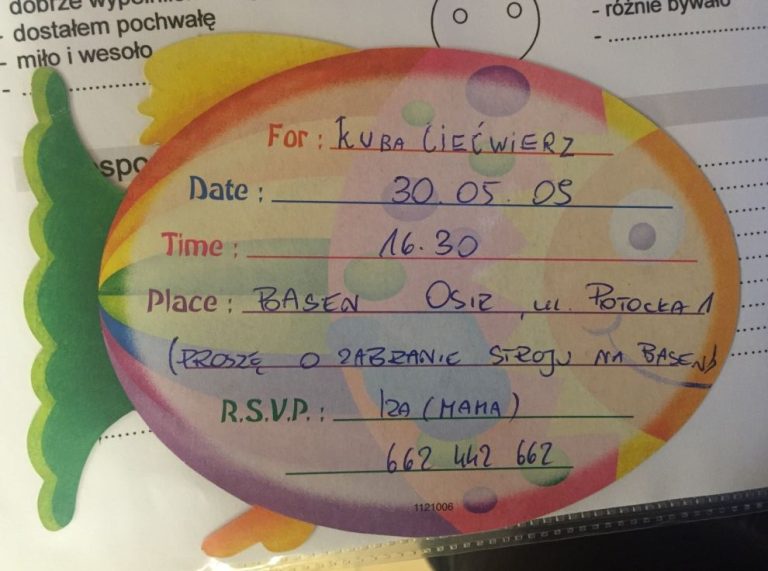 dobrze
- dostałem pochwałę
- miło i wesoło
-
- różnie bywało
-
spo
For : KUBA CIEĆWIERZ
Date : 30.05.09
Time : 16.30
Place : BASEN OSIR, ul. POTOCKA 1
(PROSZĘ O ZABRANIE STROJU NA BASEN)
R.S.V.P. : IZA (MAMA)
662 442 662
1121006